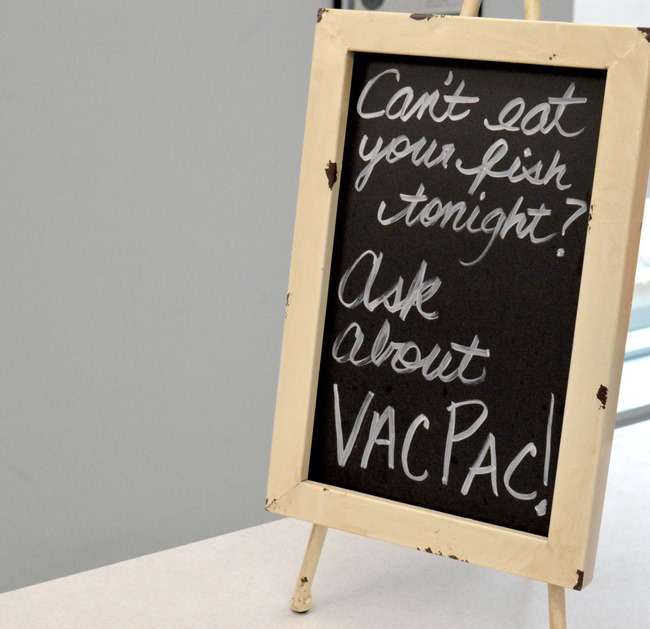 Can't eat
your fish
tonight?
Ask
about
VAC PAC!